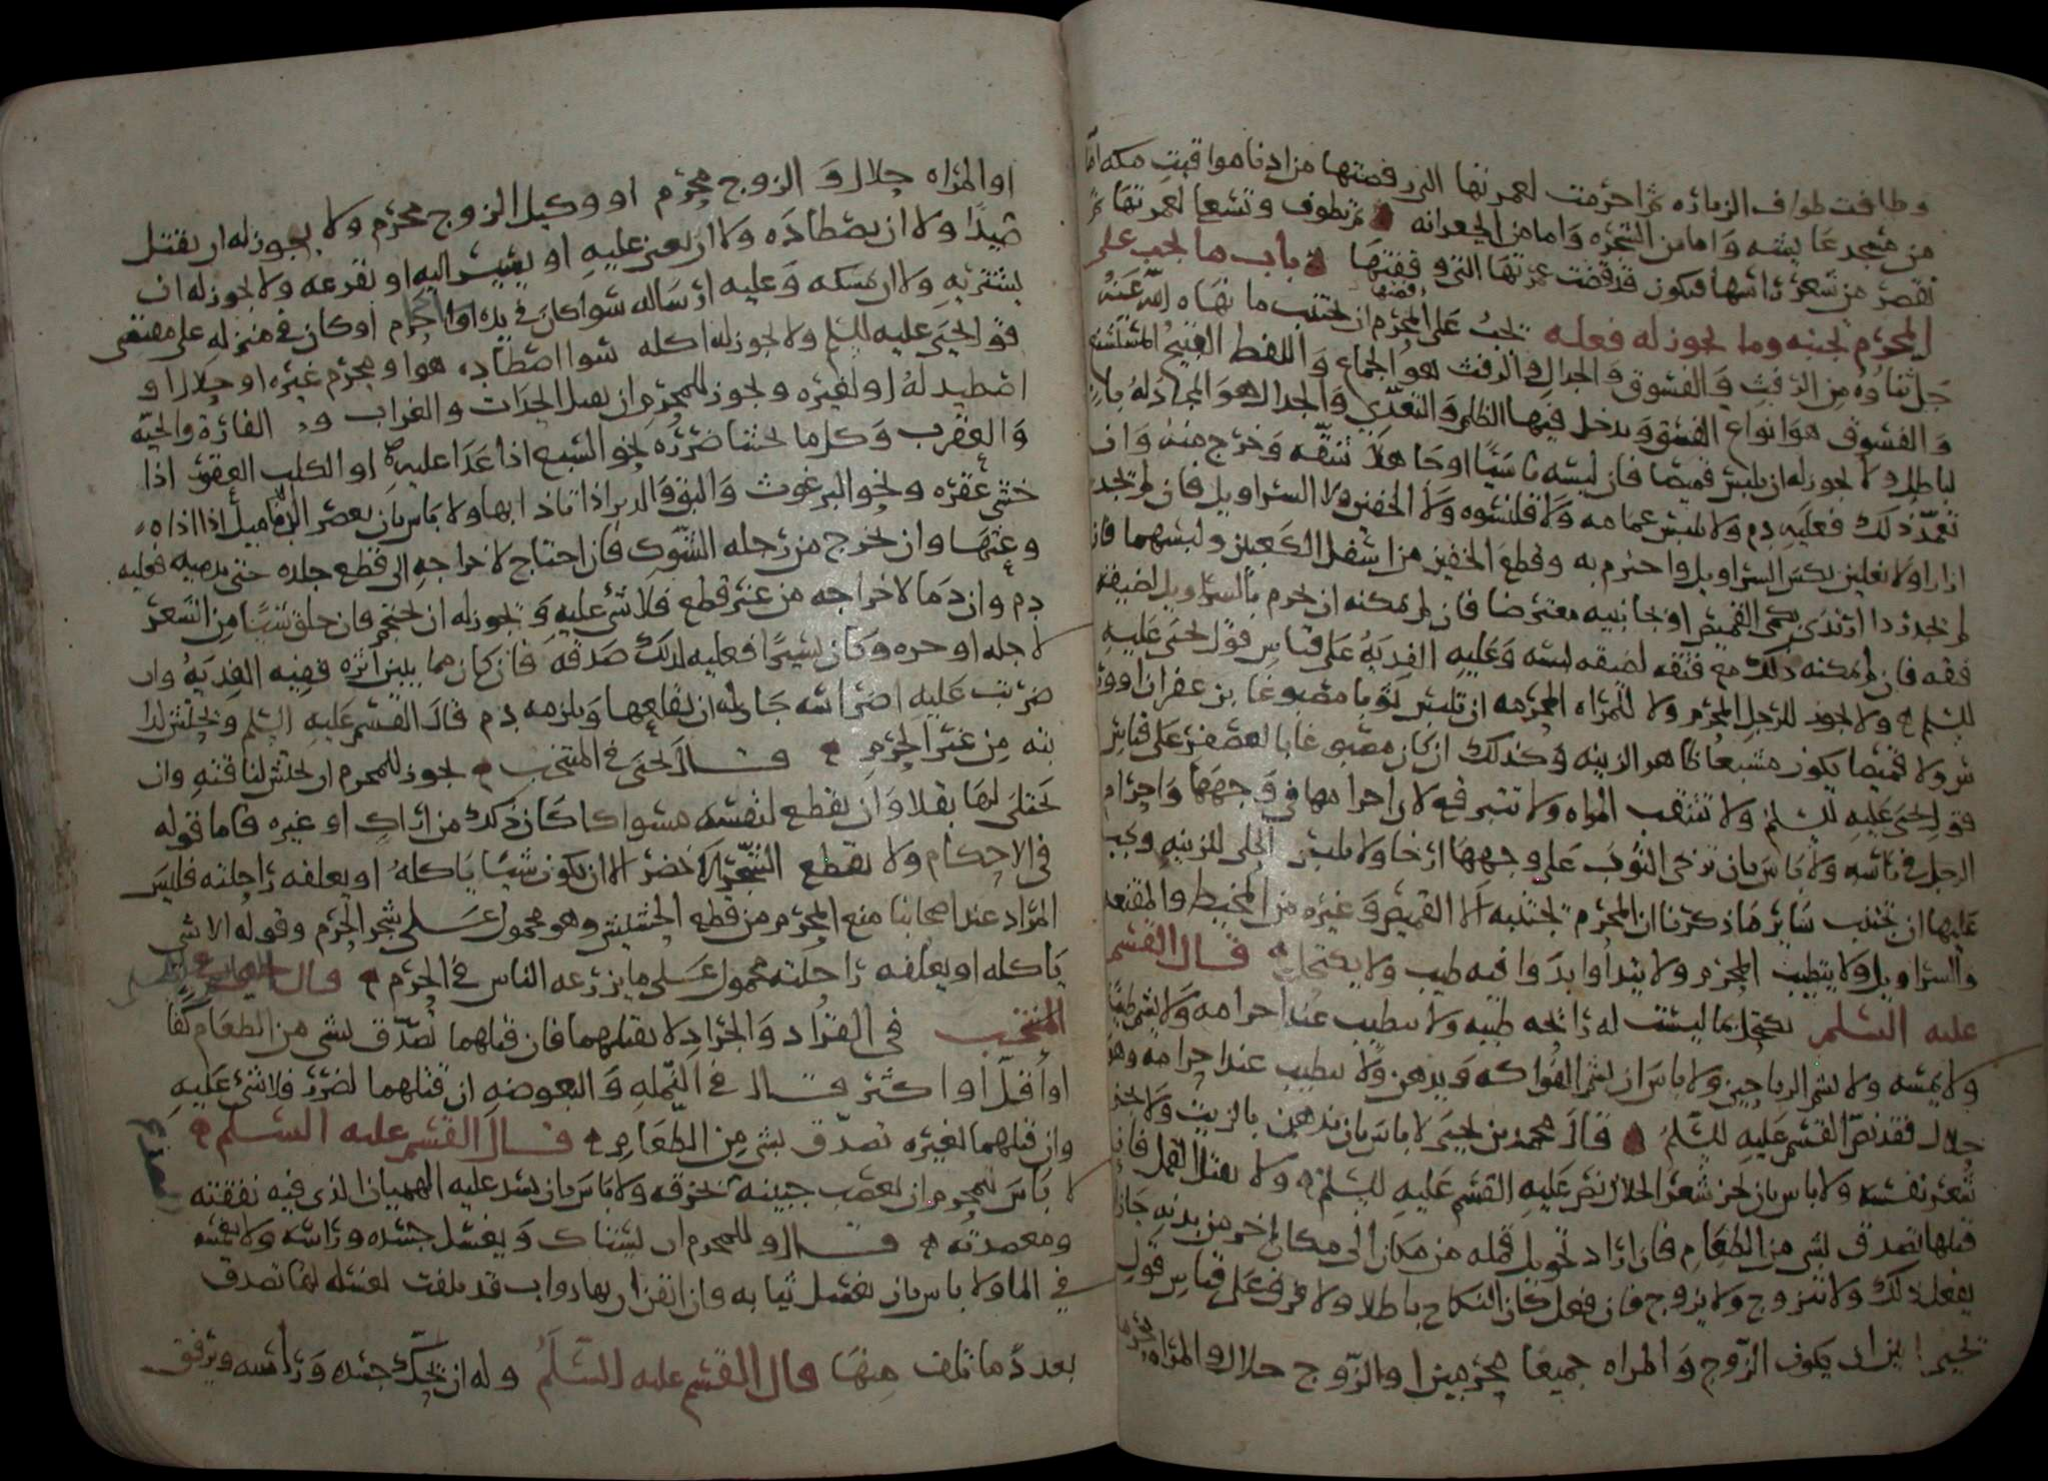 وطافت طواف الزياره ثم احرمت لعمرتها التي رفضتها من ادنا مواقيت مكه اما
من مسجد عايشه واما من الشجره واما من الجعرانه ثم تطوف وتسعا لعمرتها ثم
تقصر من شعر راسها فتكون قد قضت عمرتها التي رفضتها باب ما يجب على
المحرم تجنبه وما يجوز له فعله يجب على المحرم ان يجتنب ما نهاه الله عنه
جل ثناوه من الرفث والفسوق والجدال والرفث هو الجماع واللفظ القبيح
والفسوق هو انواع الفسق ويدخل فيها الظلم والتعدي والجدال هو المجادله
بالباطل ولا يجوز له ان يلبس قميصا فان لبسه ناسيا او جاهلا شقه وخرج منه وان
تعمد ذلك فعليه دم ولا يلبس عمامه ولا قلنسوه ولا الخفين ولا السراويل فان لم يجد
ازارا ولا نعلين نكس السراويل واحترم به وقطع الخفين من اسفل الكعبين ولبسهما فان
لم يجد ردا ارتدى بكمي القميص او جانبيه معترضا فان لم يمكنه ان يحرم بالسراويل لضيقه
فتقه فان لم يمكنه ذلك مع فتقه لضيقه لبسه وعليه الفديه على قياس قول يحيى عليه
السلم ولا يجوز للرجل المحرم ولا للمراه المحرمه ان تلبس ثوبا مصبوغا بزعفران او
ولا قميصا يكون مشبعا ظاهر الزينه وكذلك ان كان مصبوغا بالعصفر على قياس
قول يحيى عليه السلم ولا تنتقب المراه ولا تتبرقع لان احرامها في وجهها واحرام
الرجل في راسه ولا باس بان ترخي الثوب على وجهها ارخا ولا تلبس الحلى للزينه ويجب
عليها ان تجتنب ساير ما ذكرنا ان المحرم يجتنبه الا القميص وغيره من المخيط والمقنعه
والسراويل ولا يتطيب المحرم ولا يتداوا بدوا فيه طيب ولا يكتحل قال القسم
عليه السلم يكتحل بما ليست له رائحه طيبه ولا يتطيب عند احرامه ولا يشم طيبا
ولا يمسه ولا يشم الرياحين ولا باس ان يشم الفواكه ويدهن ولا يتطيب عند احرامه وهو
حلال فقد نص القسم عليه السلم قال محمد بن يحيى لا باس بان يدهن بالزيت ولا يجز
شعر نفسه ولا باس بان يجز شعر الحلال نص عليه القسم عليه السلم ولا يقتل القمل فان
قتلها تصدق بشى من الطعام فان اراد تحويل قمله من مكان الى مكان اخر من بدنه جاز
بفعل ذلك ولا يتزوج ولا يزوج فان فعل كان النكاح باطلا ولا فرق على قياس قول
يحيى بين ان يكون الزوج والمراه جميعا محرمين او الزوج حلال والمراه محرمه
او المراه حلال والزوج محرم او وكيل الزوج محرم ولا يجوز له ان يقتل
صيدا ولا ان يصطاده ولا ان يعين عليه او يشير اليه او يفزعه ولا يجوز له ان
يشتريه ولا ان يمسكه وعليه ارساله سوا كان في يده اذا احرم او كان في منزله على مقتضى
قول يحيى عليه السلم ولا يجوز له اكله سوا اصطاده هو او محرم غيره او حلال او
اصطيد له او لغيره ويجوز للمحرم ان يقتل الحدات والغراب و الفارة والحية
والعقرب وكل ما يخشا ضرره نحو السبع اذا عدا عليه او الكلب العقور اذا
خشي عقره ونحو البرغوث والبق والدبر اذا تاذا بها ولا باس بان يعصر الدماميل اذا اذاه
وعثها وان يخرج من رجله الشوك فان احتاج لاخراجه الى قطع جلده حتى يدميه فعليه
دم وان دما لاخراجه من غير قطع فلا شى عليه ويجوز له ان يحتجم فان حلق شيا من الشعر
لاجله او جزه وكان يسيرا فعليه لذلك صدقه فان كان مما يبين اثره ففيه الفديه وان
ضربت عليه اضراسه جاز له ان يقلعها ويلزمه دم قال القسم عليه السلم ويحتش لدا
بته من غير الحرم قال يحيى في المنتخب يجوز للمحرم ان يحتش لناقته وان
يختلى لها بقلا وان يقطع لنفسه مسواكا كان ذلك من اراك او غيره فاما قوله
في الاحكام ولا يقطع الشجر الاخضر الا ان يكون شيا ياكله او يعلفه راحلته فليس
المراد عند اصحابنا منع المحرم من قطع الحشيش وهو محمول على شجر الحرم وقوله الا شى
ياكله او يعلفه راحلته محمول على ما يزرعه الناس في الحرم قال
المنتخب في القراد والجراد لا يقتلهما فان قتلهما تصدق بشى من الطعام كفا
او اقل او اكثر قال في النمله والبعوضه ان قتلهما لضرر فلا شى عليه
وان قتلهما لغيره تصدق بشى من الطعام قال القسم عليه السلم
لا باس للمحرم ان يعصب جبينه بخرقه ولا باس بان يشد عليه الهميان الذى فيه نفقته
ومعضدته قال وللمحرم ان يستاك ويغسل جسده وراسه ولا يغمسه
في الما ولا باس بان يغسل ثيابه فان ايقن ان بها دواب قد تلفت لغسله لها تصدق
بعدد ما تلف منها قال القسم عليه السلم وله ان يحك جسده وراسه ويرفق